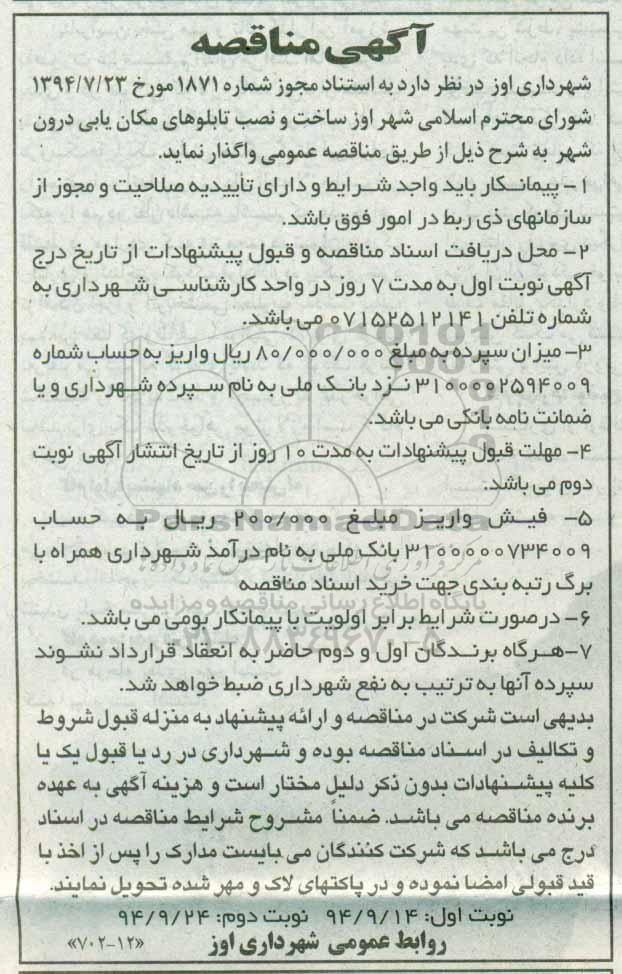 آگهی مناقصه
شهرداری اوز در نظر دارد به استناد مجوز شماره ۱۸۷۱ مورخ ۱۳۹۴/۷/۲۳
شورای محترم اسلامی شهر اوز ساخت و نصب تابلوهای مکان یابی درون
شهر به شرح ذیل از طریق مناقصه عمومی واگذار نماید.
۱- پیمانکار باید واجد شرایط و دارای تأییدیه صلاحیت و مجوز از
سازمانهای ذی ربط در امور فوق باشد.
۲- محل دریافت اسناد مناقصه و قبول پیشنهادات از تاریخ درج
آگهی نوبت اول به مدت ۷ روز در واحد کارشناسی شهرداری به
شماره تلفن ۰۷۱۵۲۵۱۲۱۴۱ می باشد.
۳- میزان سپرده به مبلغ ۸۰/۰۰۰/۰۰۰ ریال واریز به حساب شماره
۳۱۰۰۰۰۲۵۹۴۰۰۹ نزد بانک ملی به نام سپرده شهرداری و یا
ضمانت نامه بانکی می باشد.
۴- مهلت قبول پیشنهادات به مدت ۱۰ روز از تاریخ انتشار آگهی نوبت
دوم می باشد.
ParsNamadData
۵- فیش واریز مبلغ ۲۰۰/۰۰۰ ریال به حساب
۳۱۰۰۰۰۰۷۳۴۰۰۹ بانک ملی به نام درآمد شهرداری همراه با
برگ رتبه بندی جهت خرید اسناد مناقصه
پایگاه اطلاع رسانی مناقصه و مزایده
۶- درصورت شرایط برابر اولویت با پیمانکار بومی می باشد.
۰۲۱-۸۸۳۴۹۶۷۰-۵
۷- هرگاه برندگان اول و دوم حاضر به انعقاد قرارداد نشوند
سپرده آنها به ترتیب به نفع شهرداری ضبط خواهد شد.
بدیهی است شرکت در مناقصه و ارائه پیشنهاد به منزله قبول شروط
و تکالیف در اسناد مناقصه بوده و شهرداری در رد یا قبول یک یا
کلیه پیشنهادات بدون ذکر دلیل مختار است و هزینه آگهی به عهده
برنده مناقصه می باشد. ضمناً مشروح شرایط مناقصه در اسناد
درج می باشد که شرکت کنندگان می بایست مدارک را پس از اخذ با
قید قبولی امضا نموده و در پاکتهای لاک و مهر شده تحویل نمایند.
نوبت اول: ۹۴/۹/۱۴ نوبت دوم: ۹۴/۹/۲۴
روابط عمومی شهرداری اوز «۷۰۲-۱۲»